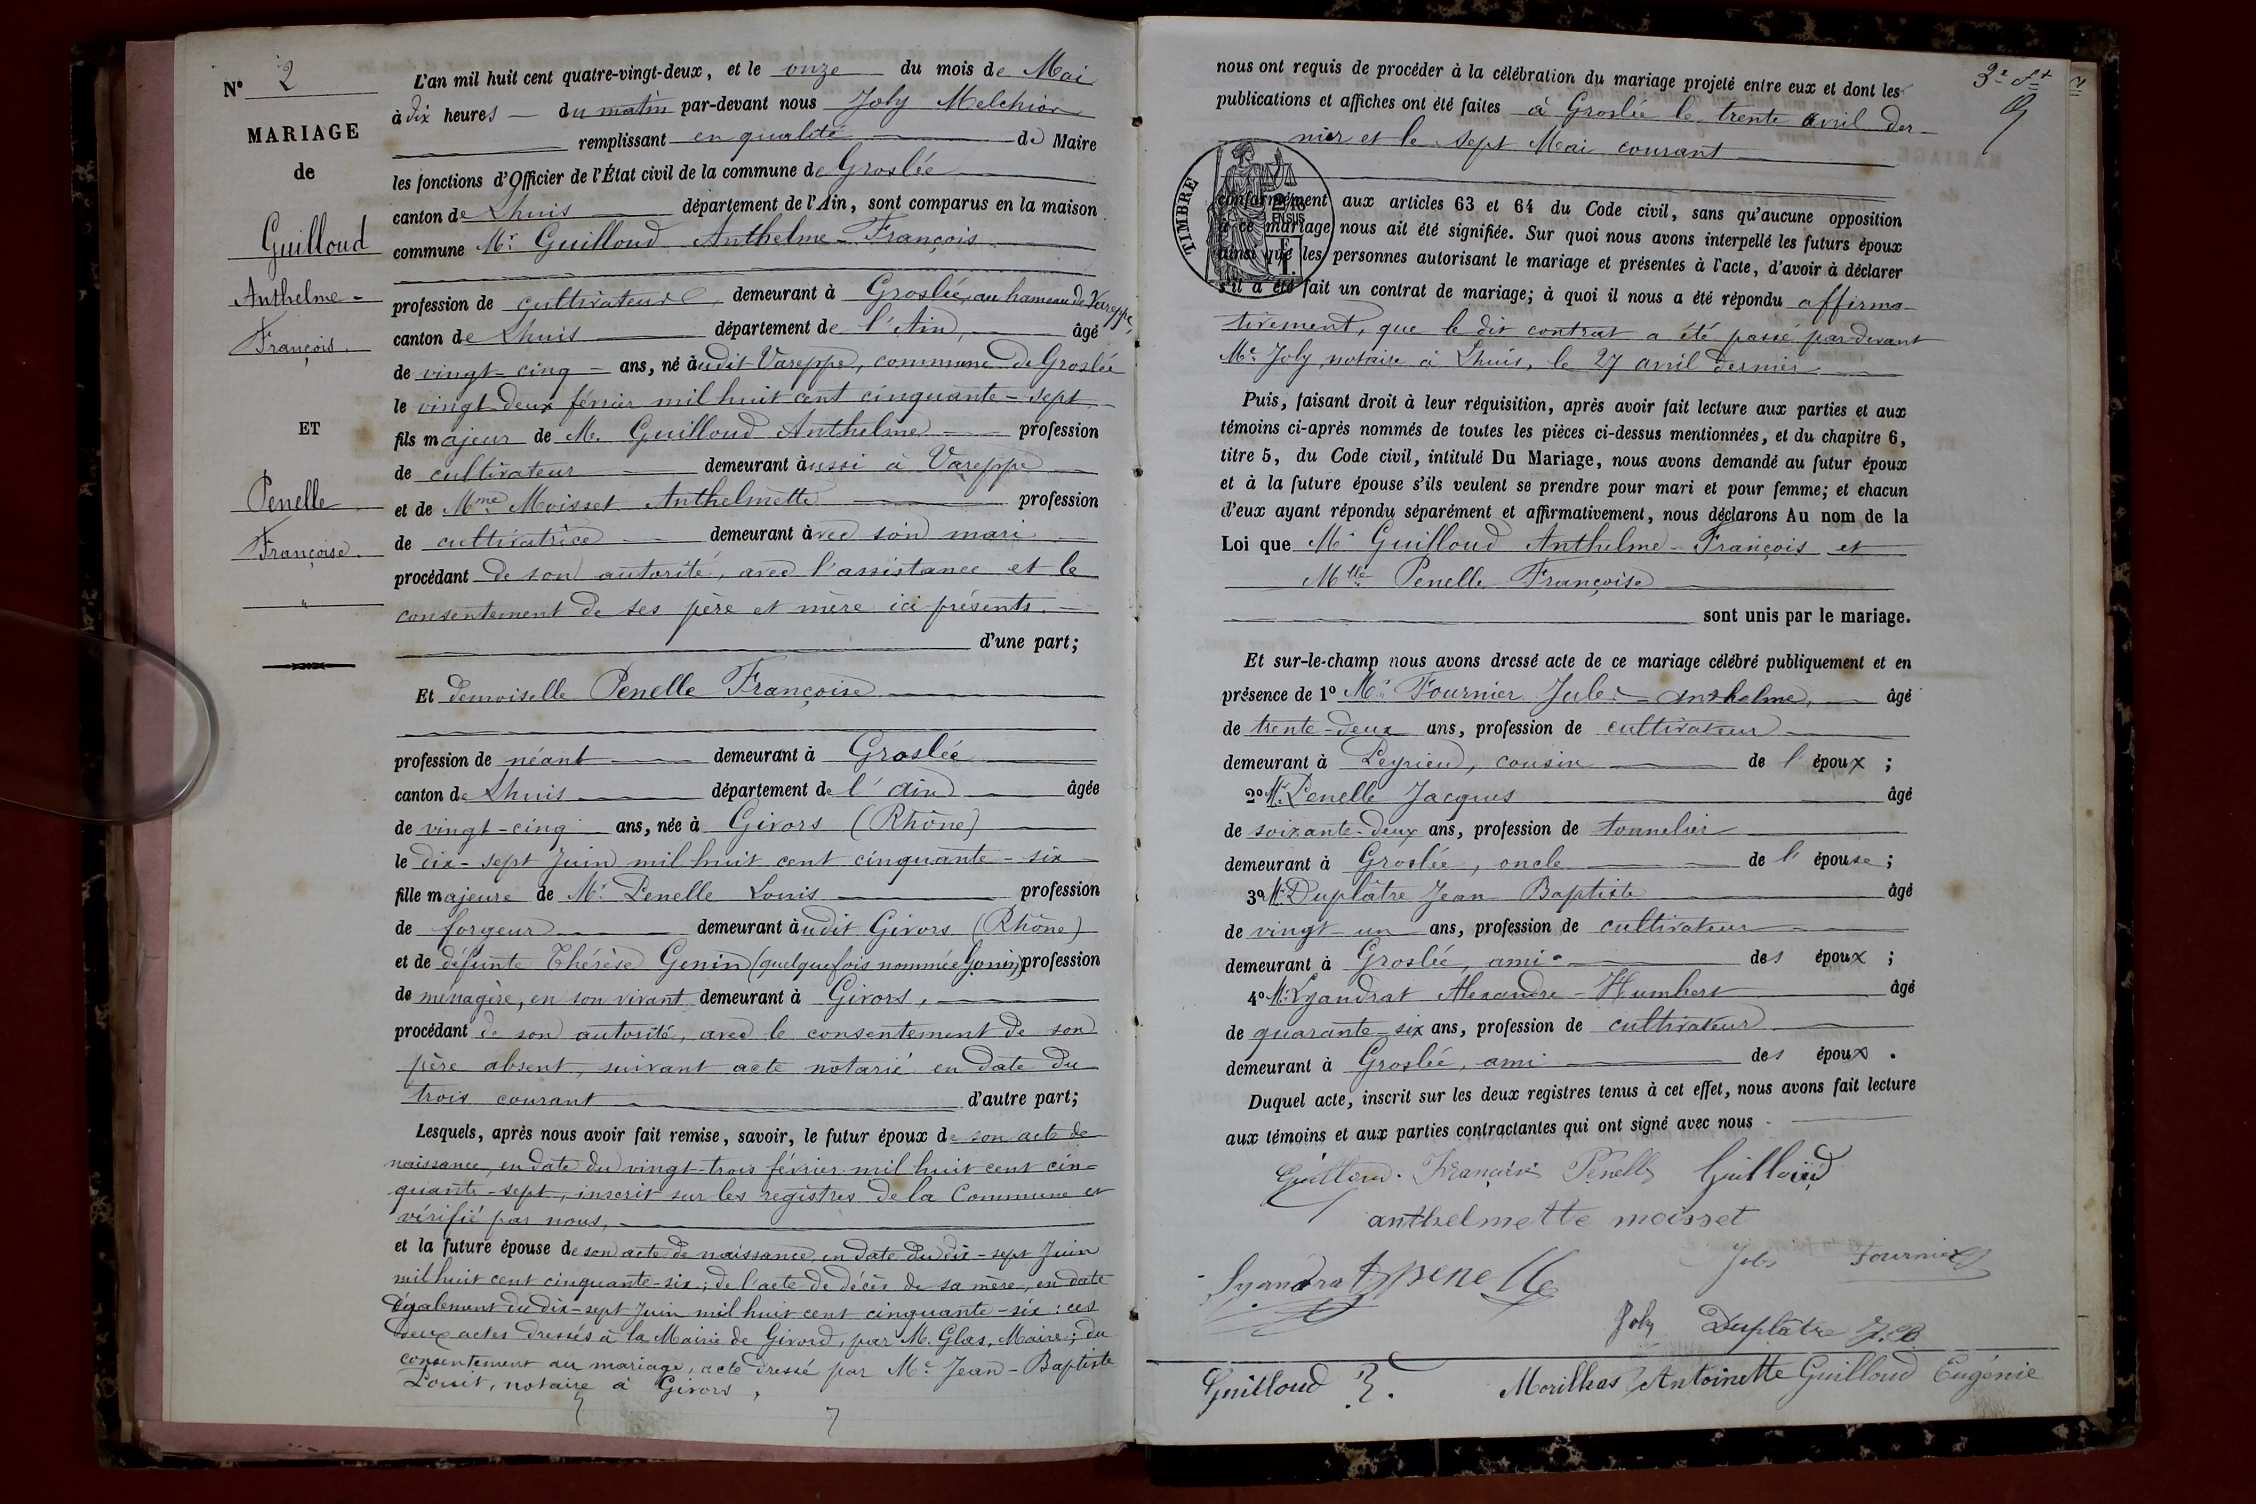 N° 2
MARIAGE
de
Guilloud
Anthelme-
François.
ET
Penelle
Françoise.
"
L'an mil huit cent quatre-vingt-deux, et le onze du mois de Mai
à dix heures du matin par-devant nous Joly Melchior
remplissant en qualité de Maire
les fonctions d'Officier de l'État civil de la commune de Groslée
canton de Lhuis département de l'Ain, sont comparus en la maison
commune Mr Guilloud Anthelme-François
profession de cultivateur demeurant à Groslée, au hameau de Vareppe,
canton de Lhuis département de l'Ain, âgé
de vingt-cinq ans, né audit Vareppe, commune de Groslée
le vingt-deux février mil huit cent cinquante-sept
fils majeur de Mr. Guilloud Anthelme profession
de cultivateur demeurant aussi à Vareppe
et de Mme Moisset Anthelmette profession
de cultivatrice demeurant avec son mari
procédant de son autorité, avec l'assistance et le
consentement de ses père et mère ici présents.
d'une part;
Et demoiselle Penelle Françoise
profession de néant demeurant à Groslée
canton de Lhuis département de l'Ain âgée
de vingt-cinq ans, née à Givors (Rhône)
le dix-sept Juin mil huit cent cinquante-six
fille majeure de Mr Penelle Louis profession
de forgeur demeurant audit Givors (Rhône)
et de défunte Thérèse Genin (quelquefois nommée Gonin) profession
de ménagère, en son vivant demeurant à Givors,
procédant de son autorité, avec le consentement de son
père absent, suivant acte notarié en date du
trois courant d'autre part;
Lesquels, après nous avoir fait remise, savoir, le futur époux de son acte de
naissance, en date du vingt-trois février mil huit cent cin-
quante-sept, inscrit sur les registres de la Commune et
vérifié par nous,
et la future épouse de son acte de naissance, en date du dix-sept Juin
mil huit cent cinquante-six; de l'acte de décès de sa mère, en date
également du dix-sept Juin mil huit cent cinquante-six: ces
deux actes dressés à la Mairie de Givord, par M. Glas, Maire; du
consentement au mariage, acte dressé par Me Jean-Baptiste
notaire à Givors,
nous ont requis de procéder à la célébration du mariage projeté entre eux et dont les
publications et affiches ont été faites à Groslée le trente avril der-
nier et le sept Mai courant
TIMBRE
2/10
EN SUS
conformément aux articles 63 et 64 du Code civil, sans qu'aucune opposition
à ce mariage nous ait été signifiée. Sur quoi nous avons interpellé les futurs époux
ainsi que les personnes autorisant le mariage et présentes à l'acte, d'avoir à déclarer
s'il a été fait un contrat de mariage; à quoi il nous a été répondu affirma-
tivement, que le dit contrat a été passé par-devant
Me Joly, notaire à Lhuis, le 27 avril dernier
Puis, faisant droit à leur réquisition, après avoir fait lecture aux parties et aux
témoins ci-après nommés de toutes les pièces ci-dessus mentionnées, et du chapitre 6,
titre 5, du Code civil, intitulé Du Mariage, nous avons demandé au futur époux
et à la future épouse s'ils veulent se prendre pour mari et pour femme; et chacun
d'eux ayant répondu séparément et affirmativement, nous déclarons Au nom de la
Loi que Mr Guilloud Anthelme-François et
Mlle Penelle Françoise
sont unis par le mariage.
Et sur-le-champ nous avons dressé acte de ce mariage célébré publiquement et en
présence de 1° Mr Fournier Jules-Anthelme, âgé
de trente-deux ans, profession de cultivateur
demeurant à Peyrieu, cousin de l'époux;
2° Mr. Penelle Jacques âgé
de soixante-deux ans, profession de tonnelier
demeurant à Groslée, oncle de l'épouse;
3° Mr. Duplâtre Jean Baptiste âgé
de vingt-un ans, profession de cultivateur
demeurant à Groslée, ami des époux;
4° Mr. Lyandrat Alexandre-Humbert âgé
de quarante-six ans, profession de cultivateur
demeurant à Groslée, ami des époux.
Duquel acte, inscrit sur les deux registres tenus à cet effet, nous avons fait lecture
aux témoins et aux parties contractantes qui ont signé avec nous.
Guilloud. Françoise Penelle Guilloud
anthelmette moisset
Jules Fournier
Lyandrat penelle
Joly Duplâtre J.B
Guilloud Morilhas Antoinette Guilloud Eugénie